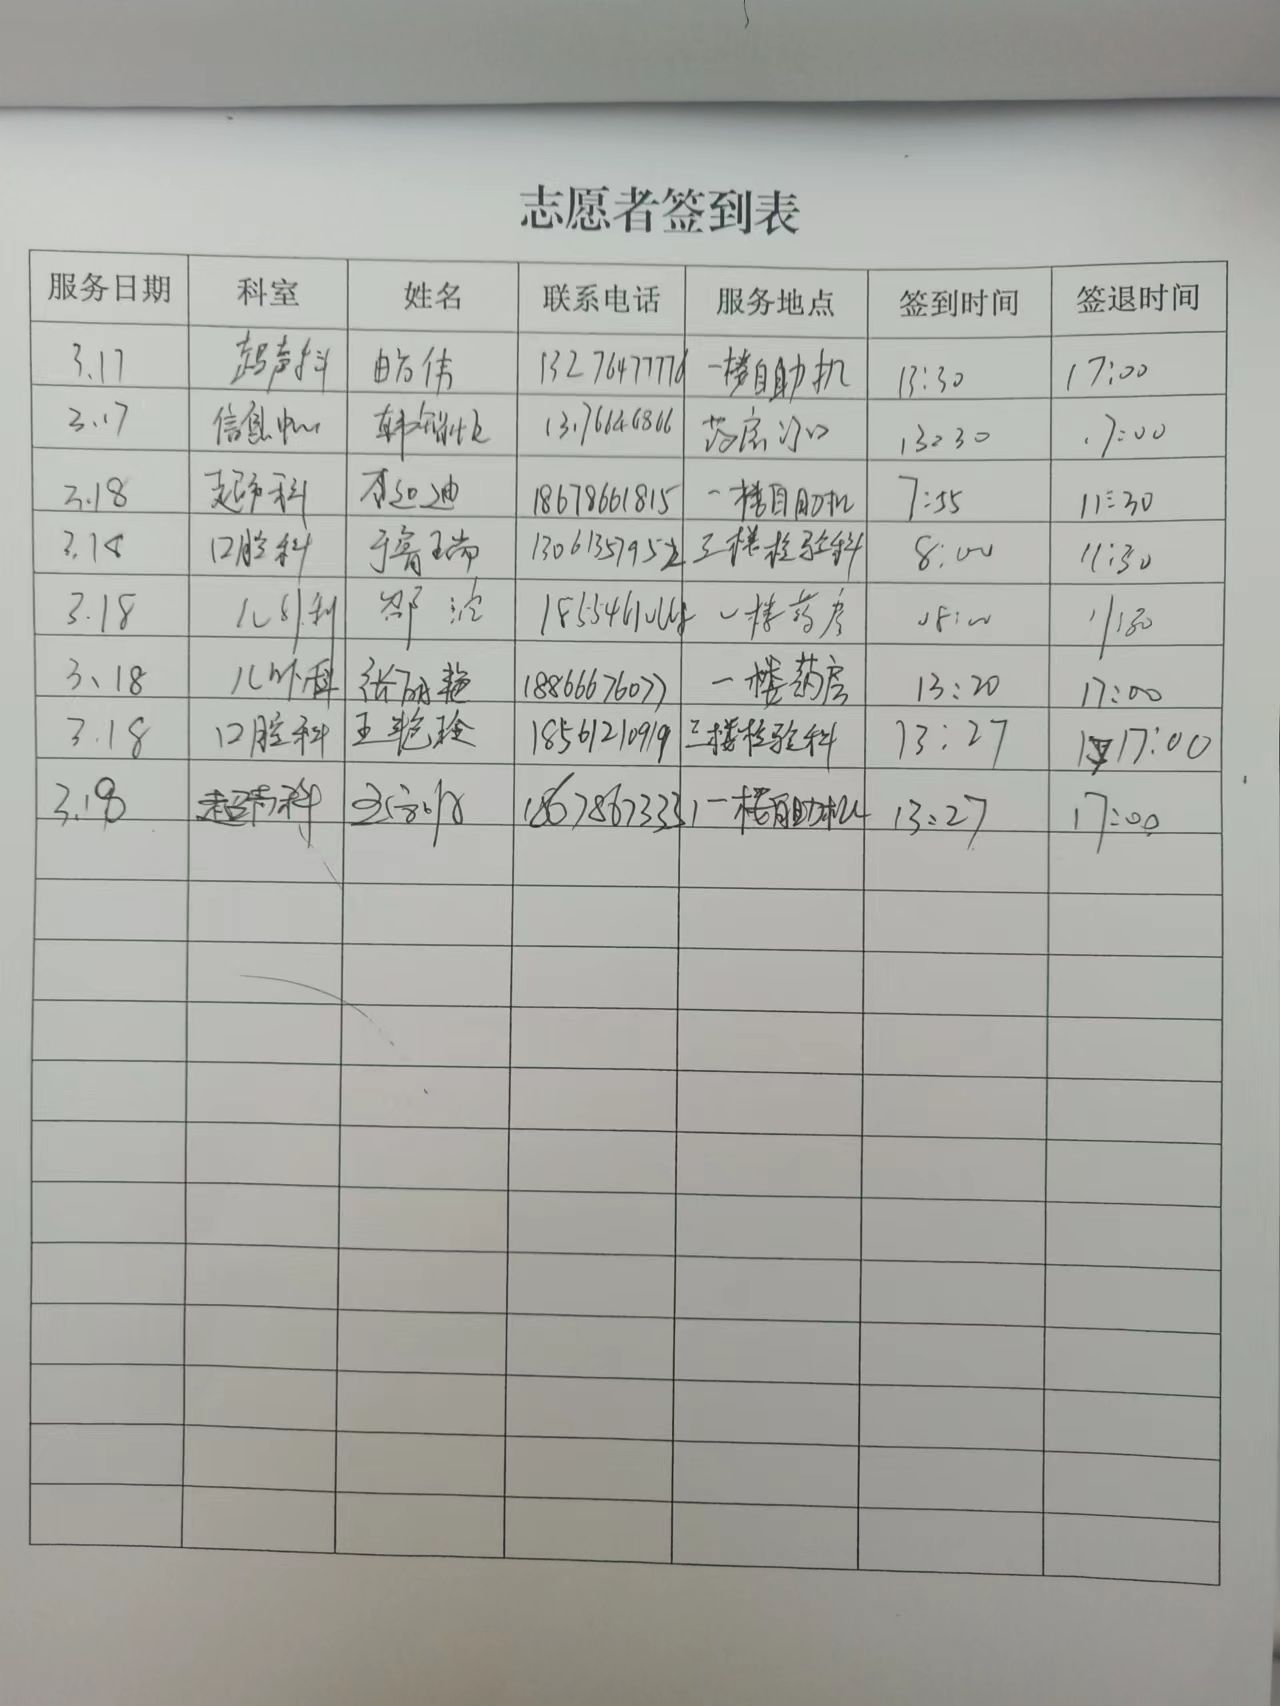 志愿者签到表
服务日期 科室 姓名 联系电话 服务地点 签到时间 签退时间
3.17 超声科 13276477776 一楼自助机 13:30 17:00
3.17 信息中心 药房门口 13:30 17:00
3.18 超声科 李迎迪 18678661815 一楼自助机 7:55 11:30
3.18 口腔科 于睿瑞 三楼检验科 8:00 11:30
3.18 儿外科 邹 一楼药房 08:00 11:30
3、18 儿外科 张丽艳 18866676077 一楼药房 13:20 17:00
3.18 口腔科 王艳玲 18561210919 三楼检验科 13:27 17:00
3.18 超声科 18678673331 一楼自助机 13:27 17:00